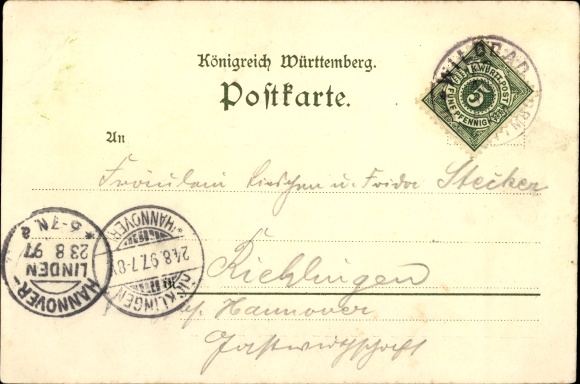 Königreich Württemberg.
Postkarte.
WILDBAD
K. WÜRTT. POST
5
FÜNF PFENNIG
An
Fräulein Lieschen u. Frida Stecker
Ricklingen
b. Hannover
Gastwirthschaft
HANNOVER-
LINDEN
23 8 97
* 6-7 N. a
RICKLINGEN
24.8.97.7-8V.
*(HANNOVER)*